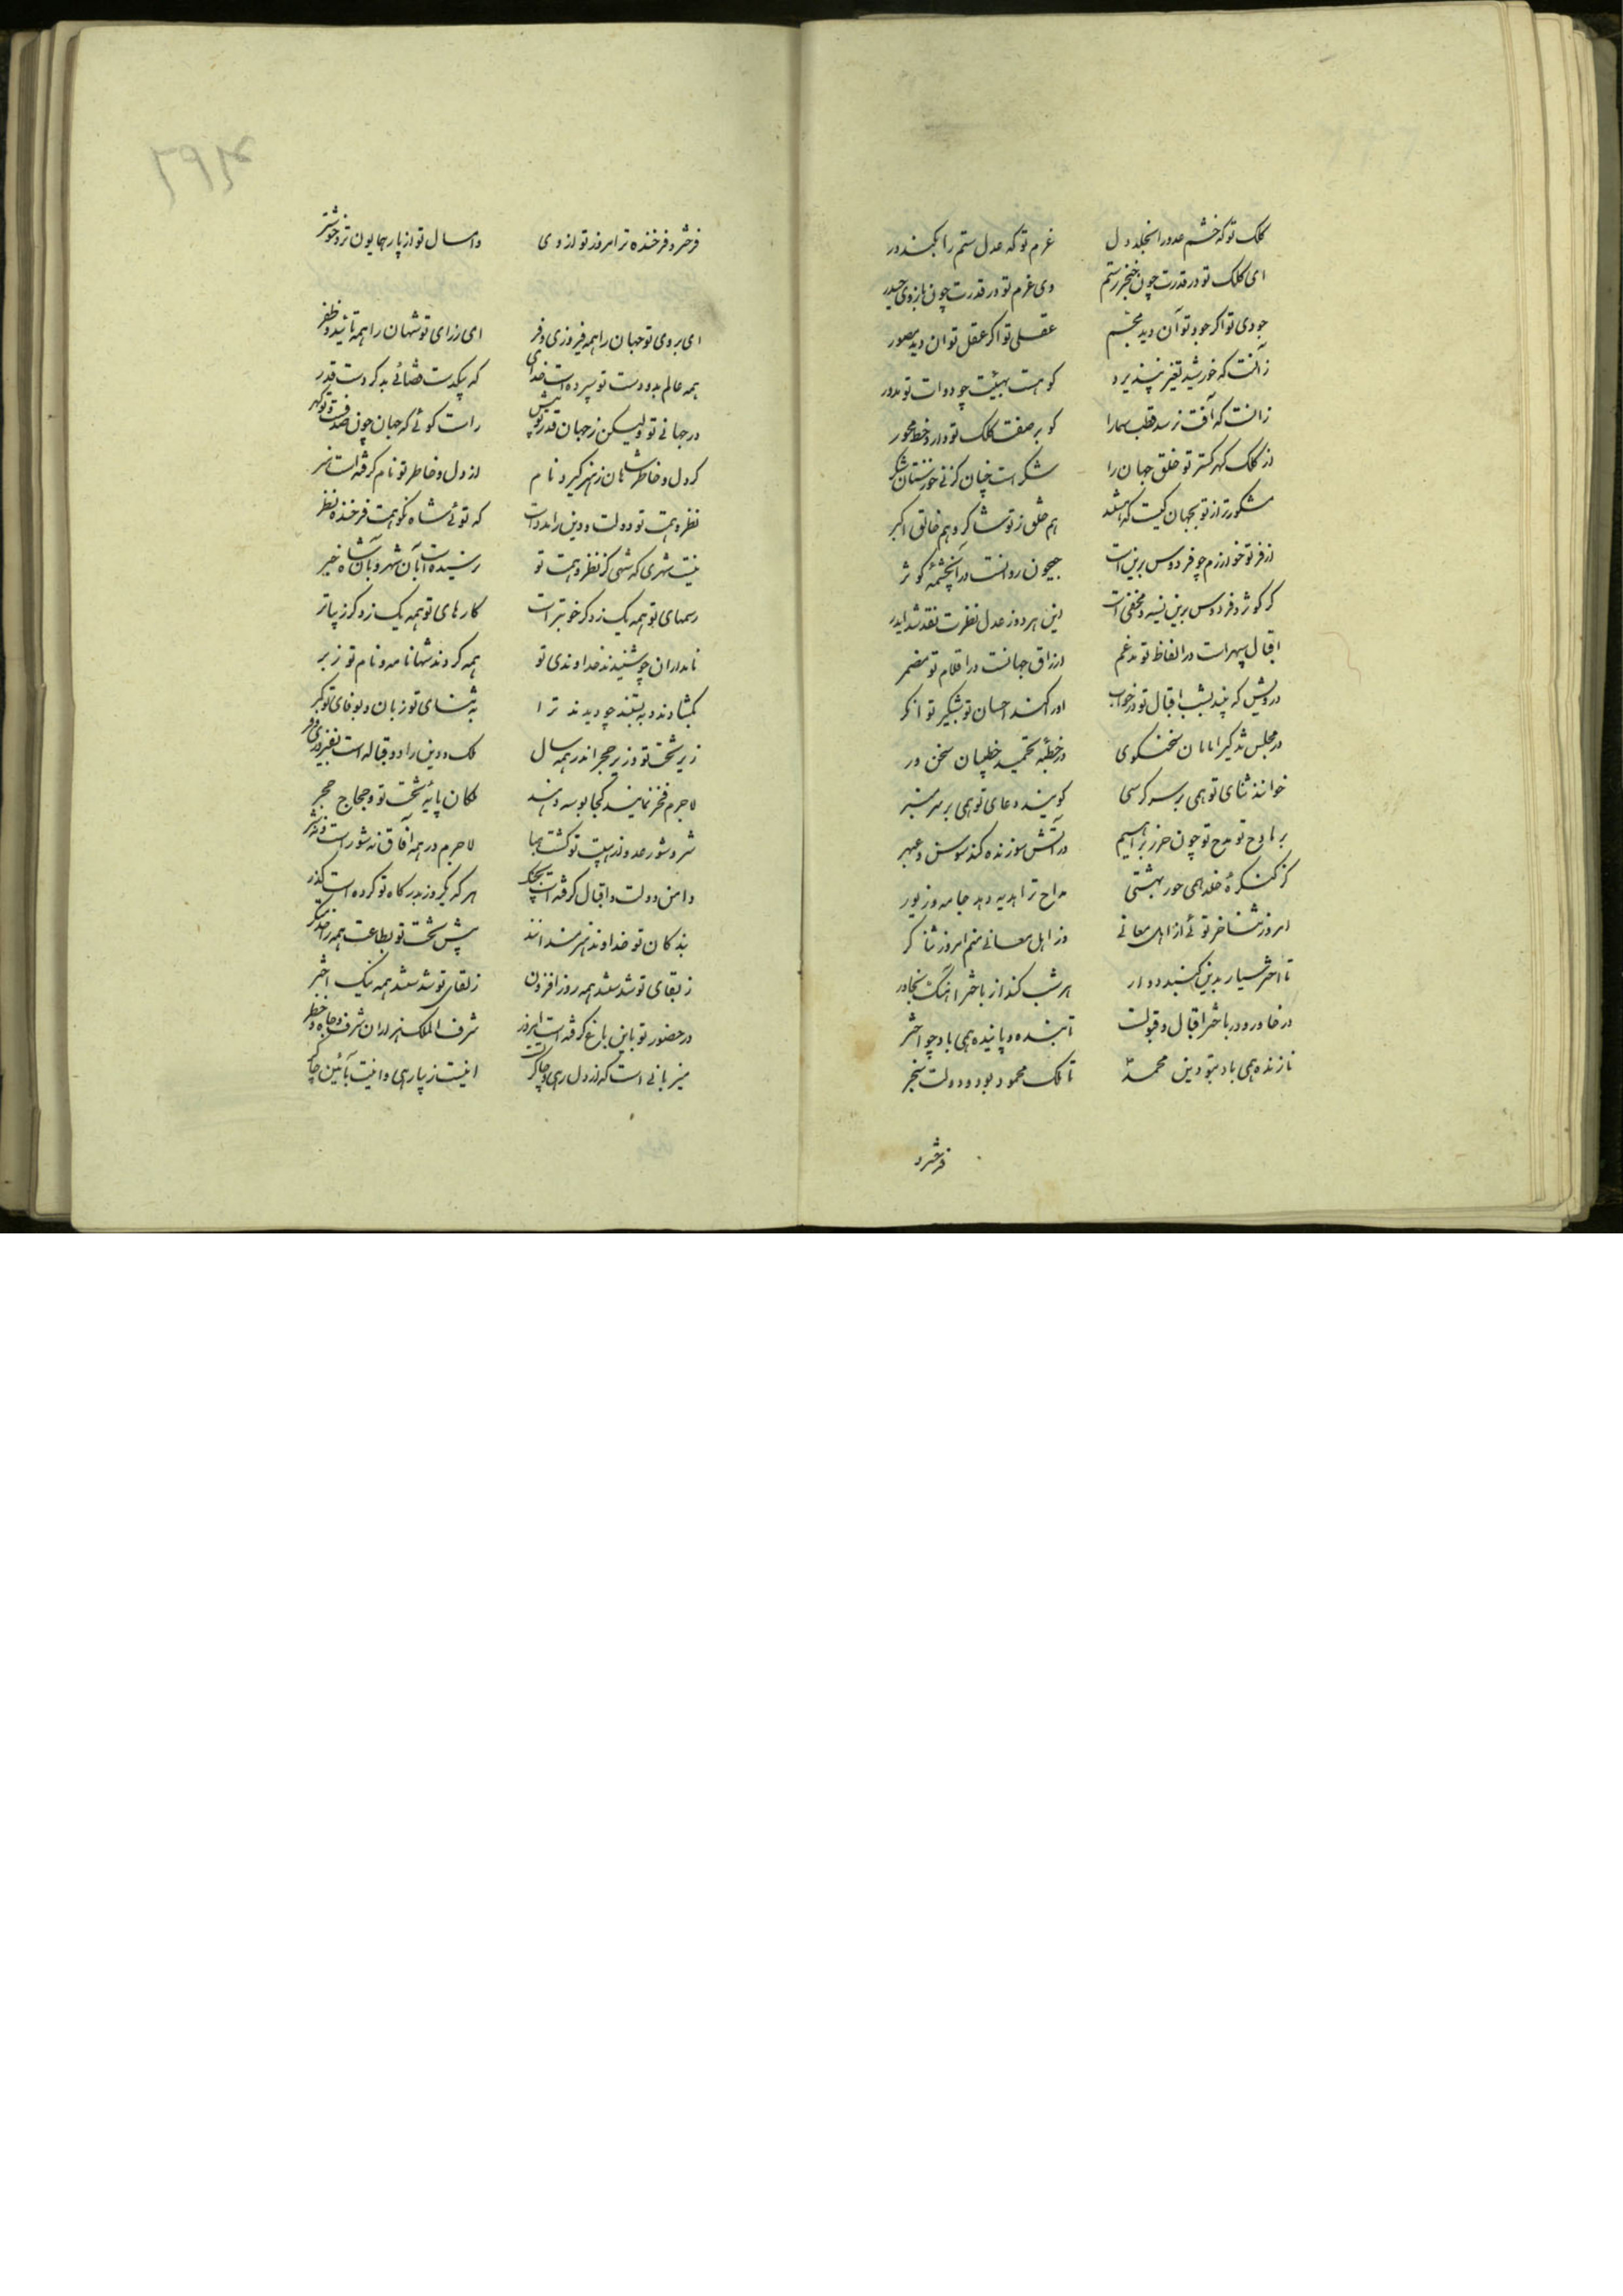 کلک تو که خشم عدو را بخلد دل عزم تو که عدل ستم را بکند در
ای کلک تو در قدرت چون خنجر رستم وی عزم تو در قدرت چون بازوی حیدر
جودی تو اگر جود توان دید مجسم عقلی تو اگر عقل توان دید مصور
زانست که خورشید تغیر نپذیرد کو هست بهیئت چو دوات تو مدور
زانست که آفت نرسد قطب سما را کو بر صفت کلک تو دارد خط محور
از کلک گهر گستر تو خلق جهان را شکر است چنان کز نی خوزستان شکر
مشکورتر از تو بجهان کیست که باشد هم خلق ز تو شاکر و هم خالق اکبر
از فر تو خوارزم چو فردوس برین است جیحون روانست در آن چشمه کوثر
گر کوثر و فردوس برین نسیه و مخفی است این هر دو ز عدل نظرت نقد شد ایدر
اقبال سپهر است در الفاظ تو مدغم ارزاق جهانست در اقلام تو مضمر
درویش که بیند بشب اقبال تو در خواب او را کند احسان تو شبگیر توانگر
در مجلس تذکیر امامان سخنگوی در خطبه تحمید خطیبان سخن ور
خوانند ثنای تو همی بر سر کرسی گویند دعای تو همی بر سر منبر
بر مادح تو مدح تو چون حرز براهیم در آتش سوزنده کند سوسن و عبهر
کز کنگره خلد همی حور بهشتی مداح ترا هدیه دهد جامه و زیور
امروز ثناخر توئی از اهل معانی وز اهل معانی منم امروز ثناگر
تا اختر سیار بدین گنبد دوار هر شب کند از باختر آهنگ بخاور
در خاور و در باختر اقبال و قبولت تابنده و پاینده همی باد چو اختر
نازنده همی باد بتو دین محمد تا ملک محمود بود و دولت سنجر
فرخ‌تر و
فرختر و فرخنده‌تر امروز تو از دی و امسال تو از پار همایون‌تر و خوشتر
ای بروی تو جهان را همه فیروزی و فر ای ز رای تو شهان را همه تائید و ظفر
همه عالم بدو دست تو سپرده است خدای که یکدست قضائی بدگر دست قدر
در جهانی تو ولیکن ز جهان قدر تو بیش راست گوئی که جهان چون صدفست و تو گهر
گر دل و خاطر شاهان ز هنر گیرد نام از دل و خاطر تو نام گرفته است هنر
نظر و همت تو دولت و دین را مدد است که توئی شاه نکو همت فرخنده نظر
نیست شهری که شهی کز نظر و همت تو نرسیده است بآن شهر و بآن شاه خبر
رسمهای تو همه یک ز دگر خوبتر است کارهای تو همه یک ز دگر زیباتر
نامداران چو شنیدند خداوندی تو همه کردند شها نامه و نام تو زبر
بگشادند و ببستند چو دیدند ترا به ثنای تو زبان و بوفای تو کمر
زیر تخت تو و زیر حجر اندر همه سال ملک و دین را دو قباله است بفیروزی و فر
لاجرم فخر نمایند کجا بوسه دهند ملکان پایه تخت تو و حجاج حجر
شر و شور عدو از هیبت تو گشت هبا لاجرم در همه آفاق نه شور است و نه شر
دامن دولت و اقبال گرفته است بچنگ هر که یکروز بدرگاه تو کرده است گذر
بندگان تو خداوند هنرمندانند پیش تخت تو بطاعت همه را
ز بقای تو شدستند همه روز افزون ز لقای تو شدستند همه نیک اختر
در حضور تو باین باغ گرفته است امروز شرف الملک هزاران شرف و جاه و خطر
میزبانی است که از دل رهی و چاکر تست اینت زیبا رهی و اینت بآئین چاکر